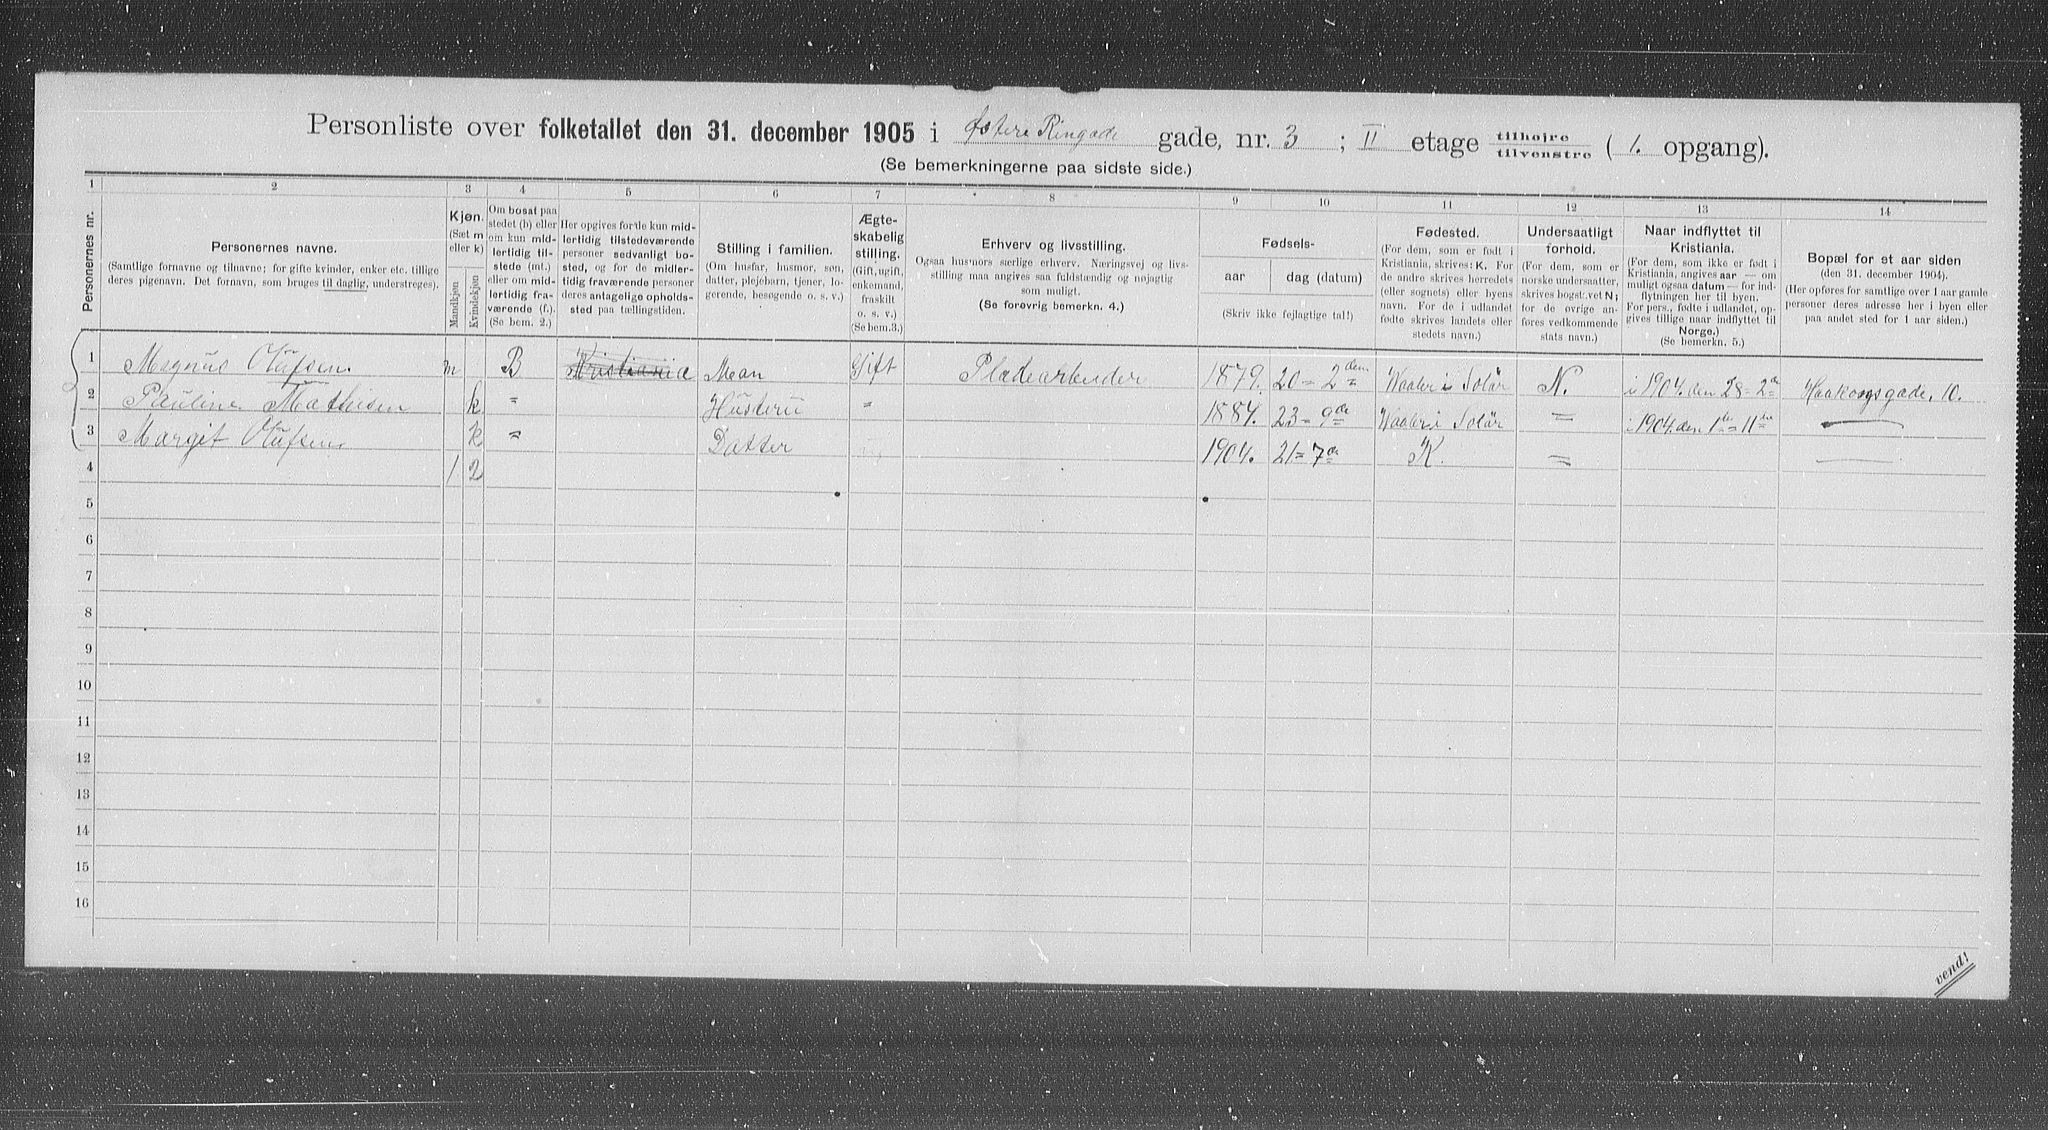 Personliste over folketallet den 31. december 1905 i Østere Ringade gade, nr. 3 ; II etage tilhøjre / tilvenstre ( 1. opgang).
(Se bemerkningerne paa sidste side.)
1 2 3 4 5 6 7 8 9 10 11 12 13 14
Personernes nr.
Personernes navne.
(Samtlige fornavne og tilnavne; for gifte kvinder, enker etc. tillige
deres pigenavn. Det fornavn, som bruges til daglig, understreges).
Kjøn.
(Sæt m
eller k)
Mandkjøn
Kvindekjøn
Om bosat paa
stedet (b) eller
om kun mid-
lertidig til-
stede (mt.)
eller om mid-
lertidig fra-
værende (f.).
(Se bem. 2.)
Her opgives for de kun mid-
lertidig tilstedeværende
personer sedvanligt bo-
sted, og for de midler-
tidig fraværende personer
deres antagelige opholds-
sted paa tællingstiden.
Stilling i familien.
(Om husfar, husmor, søn,
datter, plejebarn, tjener, lo-
gerende, besøgende o. s. v.)
Ægte-
skabelig
stilling.
(Gift, ugift,
enkemand,
fraskilt
o. s. v.)
(Se bem. 3.)
Erhverv og livsstilling.
Ogsaa husmors særlige erhverv. Næringsvej og livs-
stilling maa angives saa fuldstændig og nøjagtig
som muligt.
(Se forøvrig bemerkn. 4.)
Fødsels-
aar dag (datum)
(Skriv ikke fejlagtige tal!)
Fødested.
(For dem, som er født i
Kristiania, skrives: K. For
de andre skrives herredets
(eller sognets) eller byens
navn. For de i udlandet
fødte skrives landets eller
stedets navn.)
Undersaatligt
forhold.
(For dem, som er
norske undersaatter,
skrives bogstavet N;
for de øvrige an-
føres vedkommende
stats navn.)
Naar indflyttet til
Kristiania.
(For dem, som ikke er født i
Kristiania, angives aar — om
muligt ogsaa datum — for ind-
flytningen her til byen.
For pers., fødte i udlandet, op-
gives tillige naar indflyttet til
Norge.)
(Se bemerkn. 5.)
Bopæl for et aar siden
(den 31. december 1904).
(Her opføres for samtlige over 1 aar gamle
personer deres adresse her i byen eller
paa andet sted for 1 aar siden.)
1 Magnus Olufsen. m B Kristiania Man Gift Pladearbeider 1879. 20 = 2den Waaler i Solør N. i 1904. den 28 - 2de Haakonsgade, 10.
2 Pauline Mathisen k " Husteru " 1884. 23 = 9de Waaler i Solør = i 1904. den 1te = 11te —
3 Margit Olufsen. k " Datter 1904. 21 = 7de K. = —
4 1 2
5
6
7
8
9
10
11
12
13
14
15
16
vend!